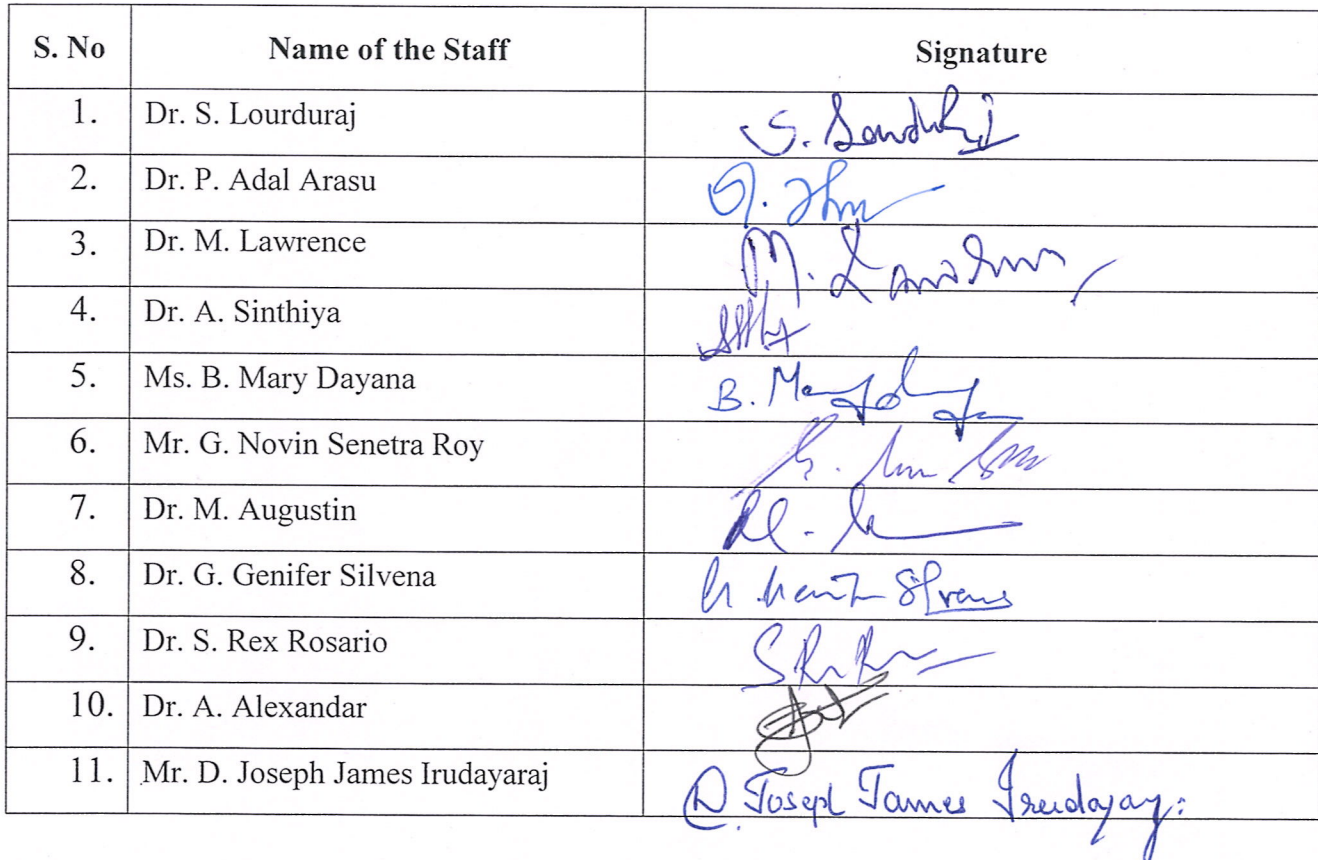 S. No Name of the Staff Signature
1. Dr. S. Lourduraj S.
2. Dr. P. Adal Arasu
3. Dr. M. Lawrence M.
4. Dr. A. Sinthiya
5. Ms. B. Mary Dayana B. Mary
6. Mr. G. Novin Senetra Roy
7. Dr. M. Augustin
8. Dr. G. Genifer Silvena
9. Dr. S. Rex Rosario
10. Dr. A. Alexandar
11. Mr. D. Joseph James Irudayaraj D. Joseph James Irudayaraj